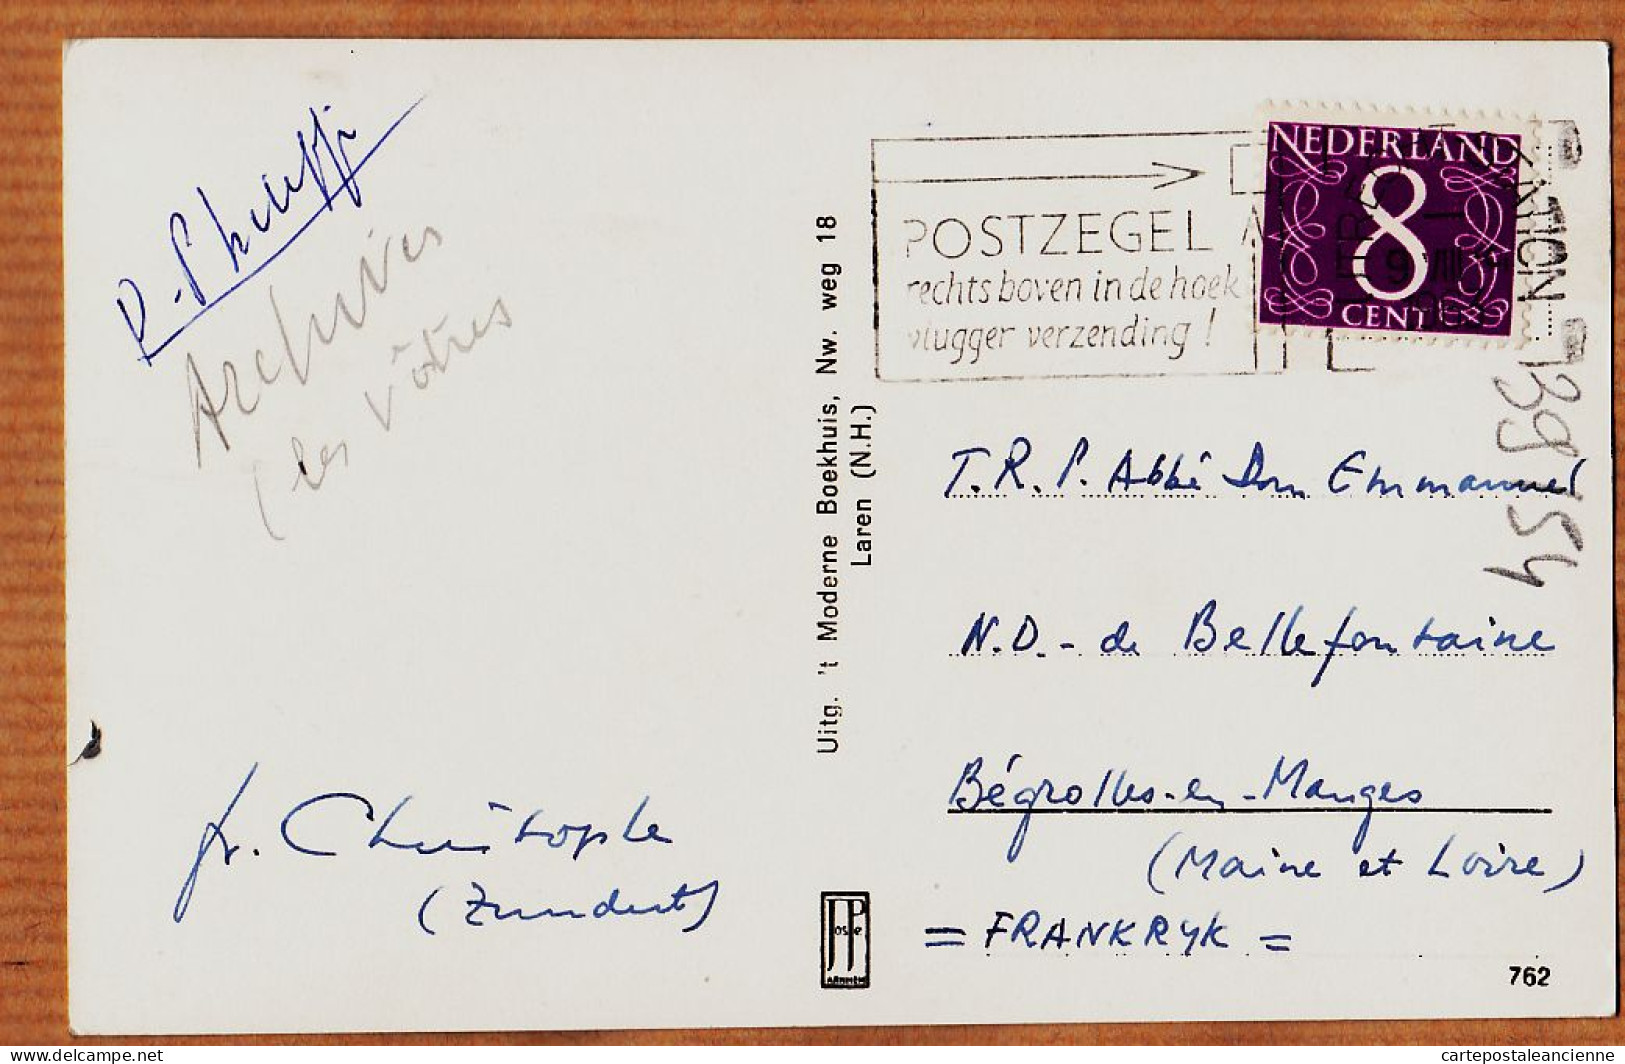 Archives
(les vôtres
fr. Christophe
(Zundert)
Uitg. 't Moderne Boekhuis, Nw. weg 18
Laren (N.H.)
JosPé
ARNHEM
POSTZEGEL
rechts boven in de hoek
vlugger verzending!
NEDERLAND
8
CENT
UTRECHT
STATION
39154
T. R. P. Abbé Dom Emmanuel
N. D. - de Bellefontaine
Bégrolles-en-Mauges
(Maine et Loire)
= FRANKRYK =
762
cartepostaleancienne
delcampe.net